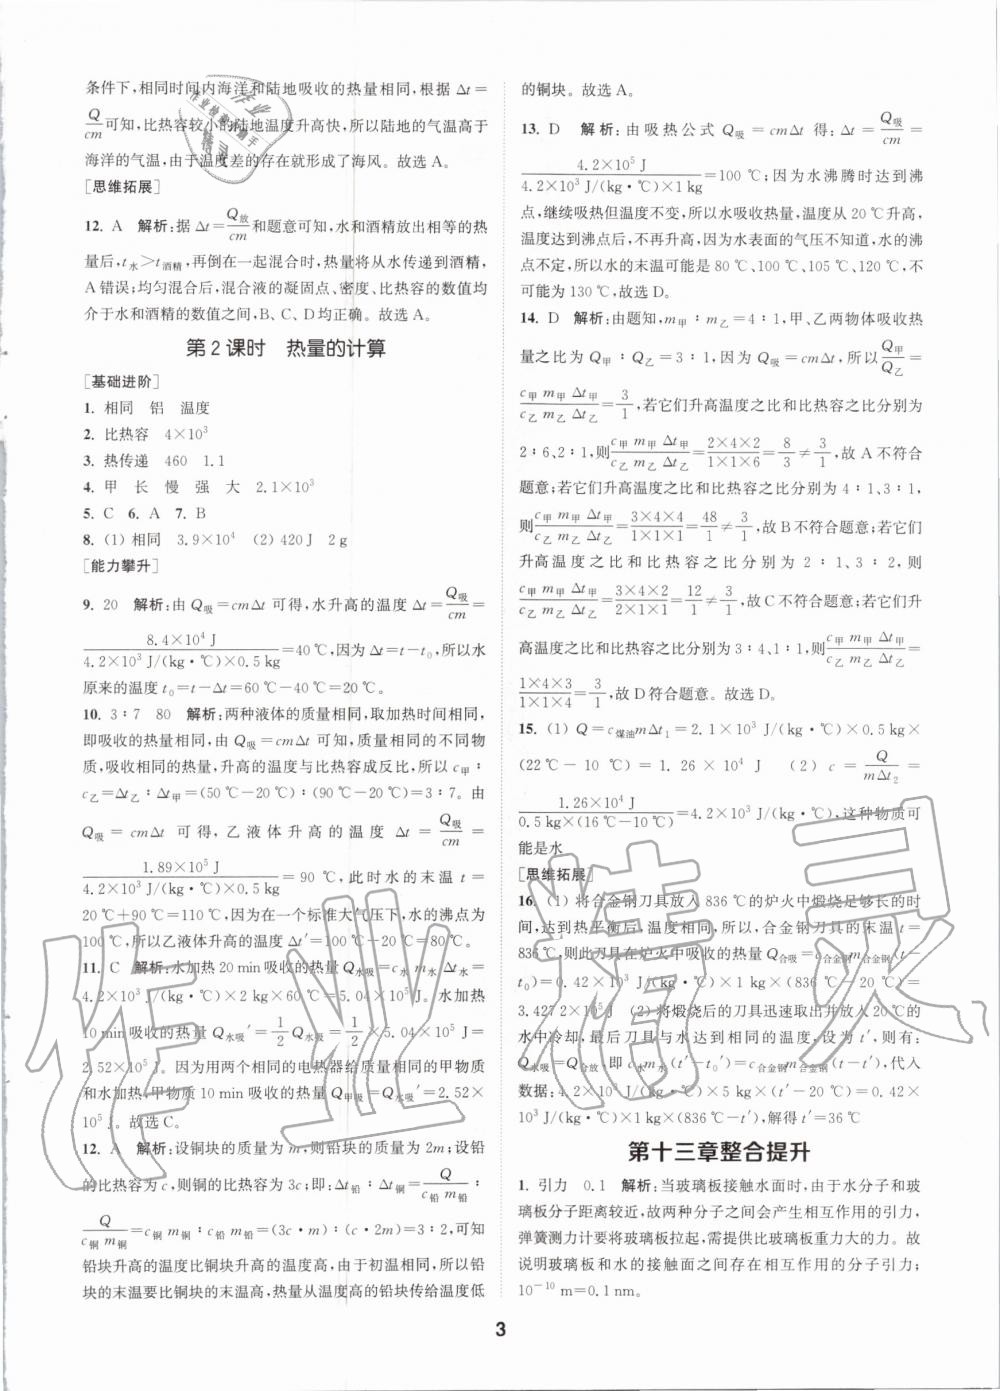 条件下,相同时间内海洋和陆地吸收的热量相同,根据 Δt=
Q/cm 可知,比热容较小的陆地温度升高快,所以陆地的气温高于
海洋的气温,由于温度差的存在就形成了海风。故选 A。
[思维拓展]
12. A 解析:据 Δt=Q放/cm 和题意可知,水和酒精放出相等的热
量后,t水>t酒精,再倒在一起混合时,热量将从水传递到酒精,
A 错误;均匀混合后,混合液的凝固点、密度、比热容的数值均
介于水和酒精的数值之间,B、C、D 均正确。故选 A。
第 2 课时 热量的计算
[基础进阶]
1. 相同 铝 温度
2. 比热容 4×10³
3. 热传递 460 1.1
4. 甲 长 慢 强 大 2.1×10³
5. C 6. A 7. B
8. (1) 相同 3.9×10⁴ (2) 420 J 2 g
[能力攀升]
9. 20 解析:由 Q吸=cmΔt 可得,水升高的温度 Δt=Q吸/cm=
8.4×10⁴ J/4.2×10³ J/(kg·℃)×0.5 kg=40 ℃,因为 Δt=t-t₀,所以水
原来的温度 t₀=t-Δt=60 ℃-40 ℃=20 ℃。
10. 3∶7 80 解析:两种液体的质量相同,取加热时间相同,
即吸收的热量相同,由 Q吸=cmΔt 可知,质量相同的不同物
质,吸收相同的热量,升高的温度与比热容成反比,所以 c甲∶
c乙=Δt乙∶Δt甲=(50 ℃-20 ℃)∶(90 ℃-20 ℃)=3∶7。由
Q吸 = cmΔt 可得,乙液体升高的温度 Δt = Q吸/cm =
1.89×10⁵ J/4.2×10³ J/(kg·℃)×0.5 kg=90 ℃,此时水的末温 t=
20 ℃+90 ℃=110 ℃,因为在一个标准大气压下,水的沸点为
100 ℃,所以乙液体升高的温度 Δt′=100 ℃-20 ℃=80 ℃。
11. C 解析:水加热 20 min 吸收的热量 Q水吸=c水m水Δt水=
4.2×10³ J/(kg·℃)×2 kg×60 ℃=5.04×10⁵ J。水加热
10 min 吸收的热量 Q水吸′=1/2 Q水吸=1/2×5.04×10⁵ J=
2.52×10⁵ J。因为用两个相同的电热器给质量相同的甲物质
和水加热,甲物质 10 min 吸收的热量 Q甲吸=Q水吸′=2.52×
10⁵ J。故选 C。
12. A 解析:设铜块的质量为 m,则铅块的质量为 2m;设铅
的比热容为 c,则铜的比热容为 3c;即:Δt铅∶Δt铜=Q/c铅m铅∶
Q/c铜m铜=c铜m铜∶c铅m铅=(3c·m)∶(c·2m)=3∶2,可知
铅块升高的温度比铜块升高的温度高,由于初温相同,所以铅
块的末温要比铜块的末温高,热量从温度高的铅块传给温度低
的铜块。故选 A。
13. D 解析:由吸热公式 Q吸=cmΔt 得:Δt=Q吸/cm=
4.2×10⁵ J/4.2×10³ J/(kg·℃)×1 kg=100 ℃;因为水沸腾时达到沸
点,继续吸热但温度不变,所以水吸收热量,温度从 20 ℃升高,
温度达到沸点后,不再升高,因为水表面的气压不知道,水的沸
点不定,所以水的末温可能是 80 ℃、100 ℃、105 ℃、120 ℃,不
可能为 130 ℃,故选 D。
14. D 解析:由题知,m甲∶m乙=4∶1,甲、乙两物体吸收热
量之比为 Q甲∶Q乙=3∶1,因为 Q=cmΔt,所以 Q甲/Q乙=
c甲m甲Δt甲/c乙m乙Δt乙=3/1,若它们升高温度之比和比热容之比分别为
2∶6、2∶1,则 c甲m甲Δt甲/c乙m乙Δt乙=2×4×2/1×1×6=8/3≠3/1,故 A 不符合
题意;若它们升高温度之比和比热容之比分别为 4∶1、3∶1,
则 c甲m甲Δt甲/c乙m乙Δt乙=3×4×4/1×1×1=48/1≠3/1,故 B 不符合题意;若它们
升高温度之比和比热容之比分别为 2∶1、3∶2,则
c甲m甲Δt甲/c乙m乙Δt乙=3×4×2/2×1×1=12/1≠3/1,故 C 不符合题意;若它们升
高温度之比和比热容之比分别为 3∶4、1∶1,则 c甲m甲Δt甲/c乙m乙Δt乙=
1×4×3/1×1×4=3/1,故 D 符合题意。故选 D。
15. (1) Q=c煤油mΔt₁=2.1×10³ J/(kg·℃)×0.5 kg×
(22 ℃-10 ℃)=1.26×10⁴ J (2) c=Q/mΔt₂=
1.26×10⁴ J/0.5 kg×(16 ℃-10 ℃)=4.2×10³ J/(kg·℃),这种物质可
能是水
[思维拓展]
16. (1) 将合金钢刀具放入 836 ℃的炉火中煅烧足够长的时
间,达到热平衡后,温度相同,所以,合金钢刀具的末温 t=
836 ℃,则此刀具在炉火中吸收的热量 Q合吸=c合金钢m合金钢(t-
t₀)=0.42×10³ J/(kg·℃)×1 kg×(836 ℃-20 ℃)=
3.427 2×10⁵ J (2) 将煅烧后的刀具迅速取出并放入 20 ℃的
水中冷却,最后刀具与水达到相同的温度,设为 t′,则有:
Q水吸=Q合放,即 c水m水(t′-t₀′)=c合金钢m合金钢(t-t′),代入
数据:4.2×10³ J/(kg·℃)×5 kg×(t′-20 ℃)=0.42×
10³ J/(kg·℃)×1 kg×(836 ℃-t′),解得 t′=36 ℃
第十三章整合提升
1. 引力 0.1 解析:当玻璃板接触水面时,由于水分子和玻
璃板分子距离较近,故两种分子之间会产生相互作用的引力,
弹簧测力计要将玻璃板拉起,需提供比玻璃板重力大的力。故
说明玻璃板和水的接触面之间存在相互作用的分子引力;
10⁻¹⁰ m=0.1 nm。
3
作业精灵